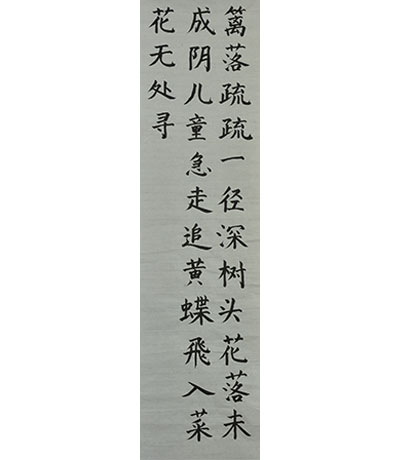 篱落疏疏一径深树头花落未
成阴儿童急走追黄蝶飛入菜
花无处寻